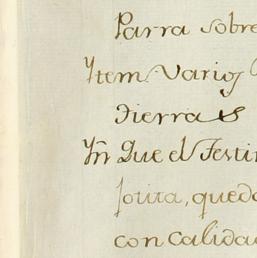 Parra sobre
Ytem Varios
Tierras
Yñ Que el Testi
Jotita, queda
con Calida